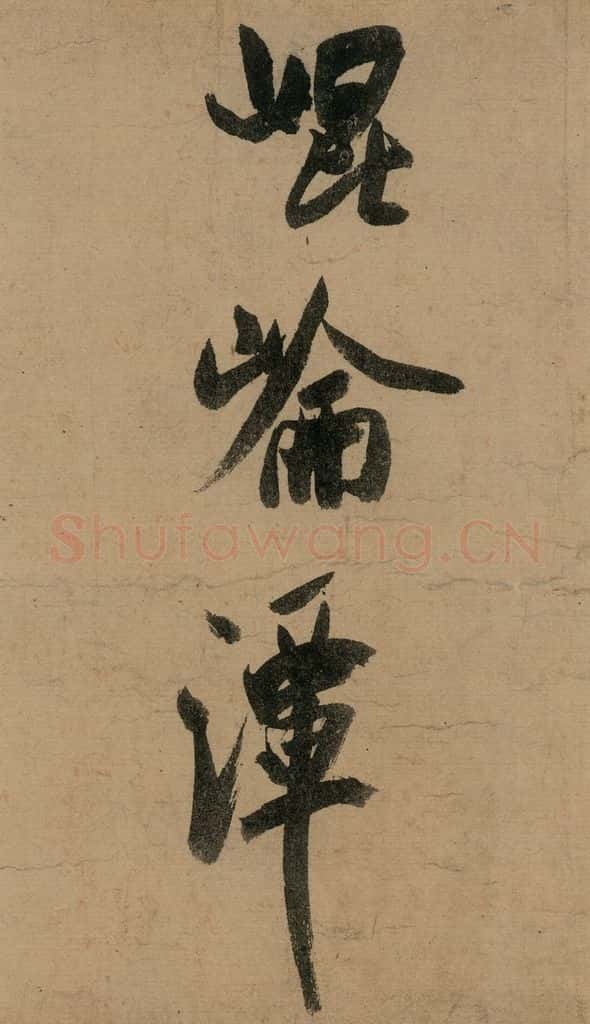 崐
崘
潭
Shufawang.CN